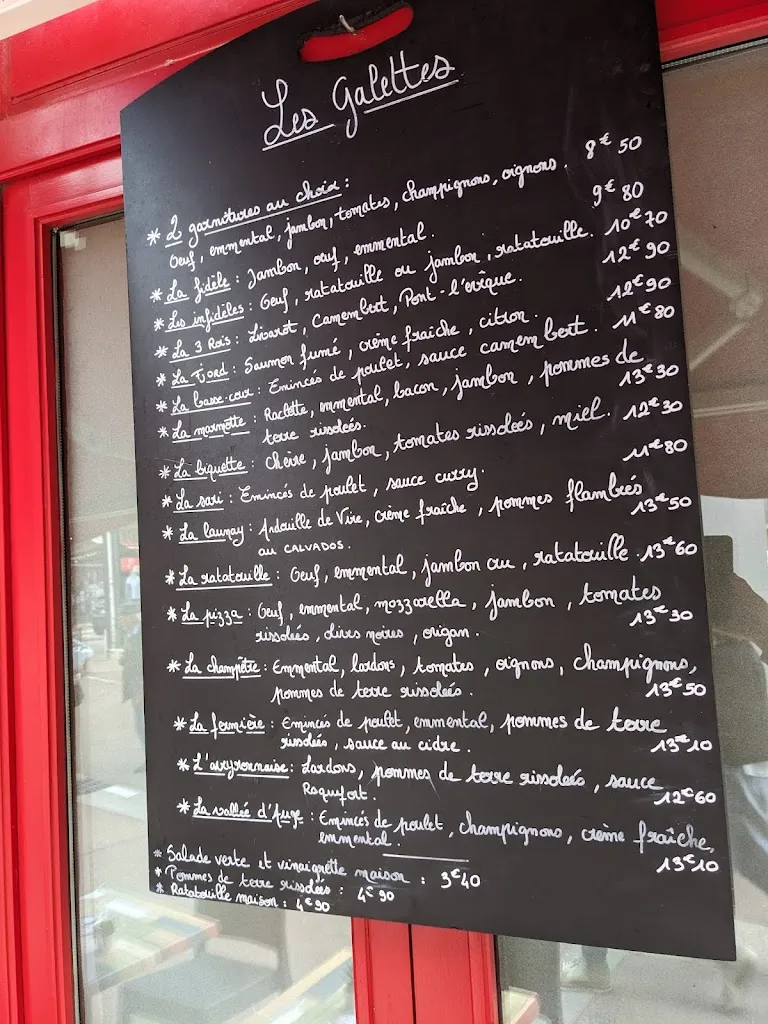 Les Galettes
* 2 garnitures au choix :
Oeuf, emmental, jambon, tomates, champignons, oignons. 8€50
* La fidèle : Jambon, œuf, emmental. 9€80
* Les infidèles : Oeuf, ratatouille ou jambon, ratatouille. 10€70
* La 3 Rois : Livarot, Camembert, Pont-l'évêque. 12€90
* La Fjord : Saumon fumé, crème fraiche, citron. 12€90
* La basse-cour : Emincés de poulet, sauce camembert. 11€80
* La marmotte : Raclette, emmental, bacon, jambon, pommes de
terre rissolées. 13€30
* La biquette : Chèvre, jambon, tomates rissolées, miel. 12€30
* La sari : Emincés de poulet, sauce curry. 11€80
* La launay : Andouille de Vire, crème fraîche, pommes flambées
au CALVADOS. 13€50
* La ratatouille : Oeuf, emmental, jambon ou, ratatouille. 13€60
* La pizza : Oeuf, emmental, mozzarella, jambon, tomates
rissolées, olives noires, origan. 13€30
* La champêtre : Emmental, lardons, tomates, oignons, champignons,
pommes de terre rissolées. 13€50
* La fermière : Emincés de poulet, emmental, pommes de terre
rissolées, sauce au cidre. 13€10
* L'aveyronnaise : Lardons, pommes de terre rissolées, sauce
Roquefort. 12€60
* La vallée d'Auge : Emincés de poulet, champignons, crème fraîche,
emmental. 13€10
* Salade verte et vinaigrette maison : 3€40
* Pommes de terre rissolées : 4€90
* Ratatouille maison : 4€90